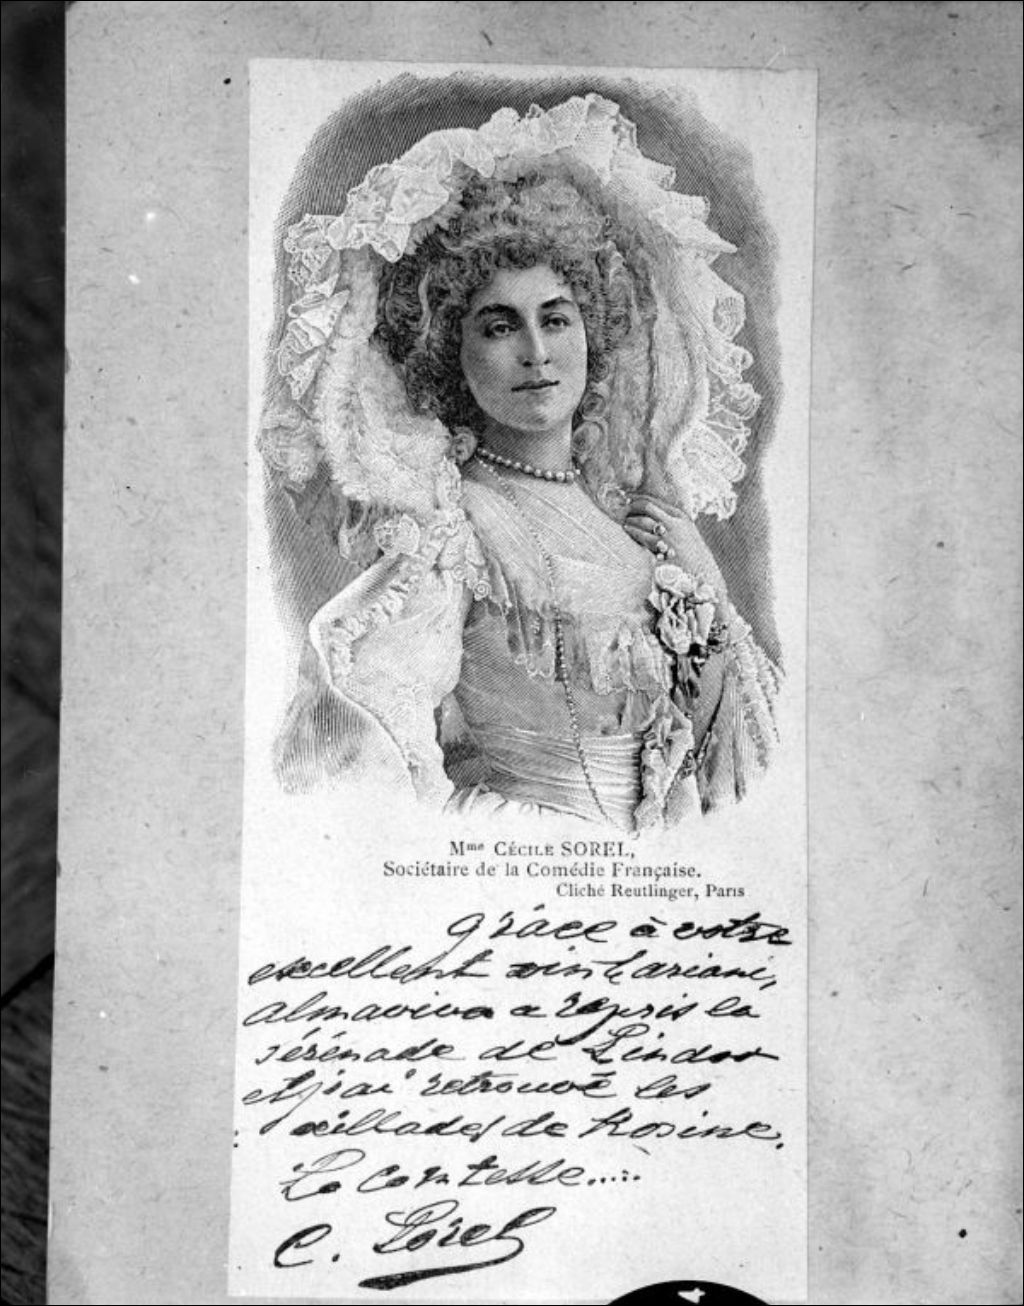 Mme CÉCILE SOREL,
Sociétaire de la Comédie Française.
Cliché Reutlinger, Paris
Grâce à votre
excellent vin Mariani,
almaviva a repris la
sérénade de Lindor
et j'ai retrouvé les
œillades de Rosine.
La comtesse.....
C. Sorel